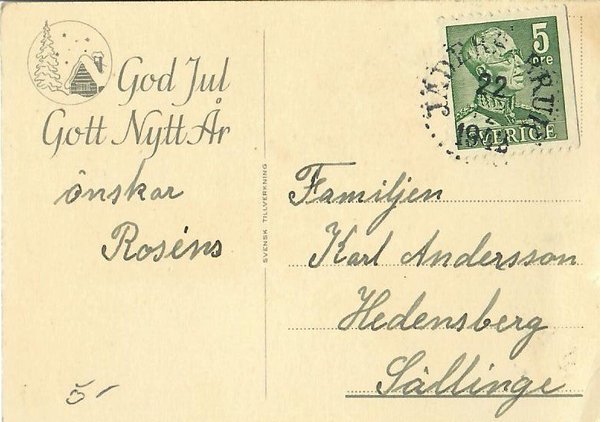 God Jul
Gott Nytt År
önskar
Roséns
SVENSK TILLVERKNING
5 öre
SVERIGE
JÄDERS BRUK
22
19
Familjen
Karl Andersson
Hedensberg
Sällinge
5-